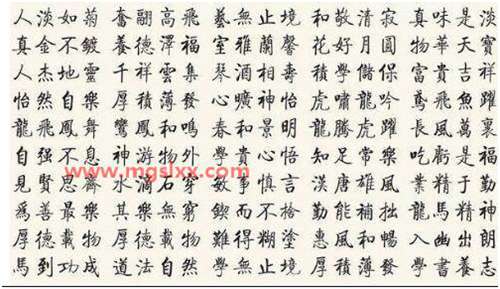 人淡如菊 奮翮高飛 藝無止境 和敬清寂 真味是淡
真金不鍍 養德澤福 室雅蘭馨 花好月圓 物華天寶
人杰地靈 千祥雲集 琴酒相壽 積學儲保 富貴吉祥
怡然自樂 厚積薄發 心曠神怡 虎嘯龍吟 鳶飛魚躍
龍飛鳳舞 鸞鳳和鳴 春和景明 龍騰虎躍 長風萬裏
自强不息 神游物外 學貴心悟 知足常樂 吃虧是福
www.mgslxx.com
見賢思齊 水滴石穿 敏事慎言 漢唐雄風 業精于勤
爲善最樂 其樂無窮 鍥而不捨 勤能補拙 龍馬精神
厚德載物 厚德載物 難得糊塗 惠風和暢 入幽出朗
馬到功成 道法自然 學無止境 厚積薄發 學書養志